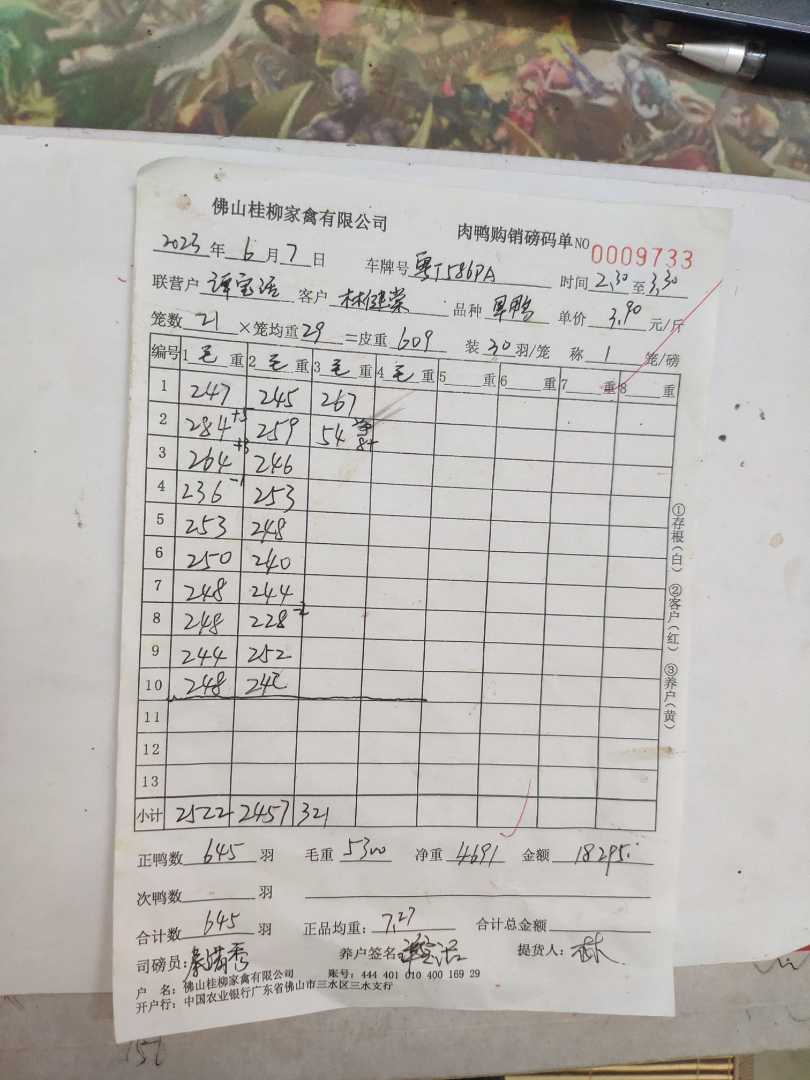 佛山桂柳家禽有限公司 肉鸭购销磅码单 NO 0009733
2023 年 6 月 7 日 车牌号 粤T586PA 时间 2,30 至 3,30
联营户 客户 林健棠 品种 单价 3,90 元/斤
笼数 21 ×笼均重 29 =皮重 609 装 30 羽/笼 称 1 笼/磅
编号 1 毛 重 2 毛 重 3 毛 重 4 毛 重 5 重 6 重 7 重 8 重
1 247 245 267
2 284 +5 259 54
3 264 +3 246
4 236 -1 253
5 253 248
6 250 240
7 248 244
8 248 228 -2
9 244 252
10 248
11
12
13
小计 2522 2457 321
①存根(白) ②客户(红) ③养户(黄)
正鸭数 645 羽 毛重 5300 净重 4691 金额 18295
次鸭数 羽
合计数 645 羽 正品均重: 7,27 合计总金额
司磅员: 养户签名 提货人: 林
户 名: 佛山桂柳家禽有限公司 账号: 444 401 010 400 169 29
开户行: 中国农业银行广东省佛山市三水区三水支行